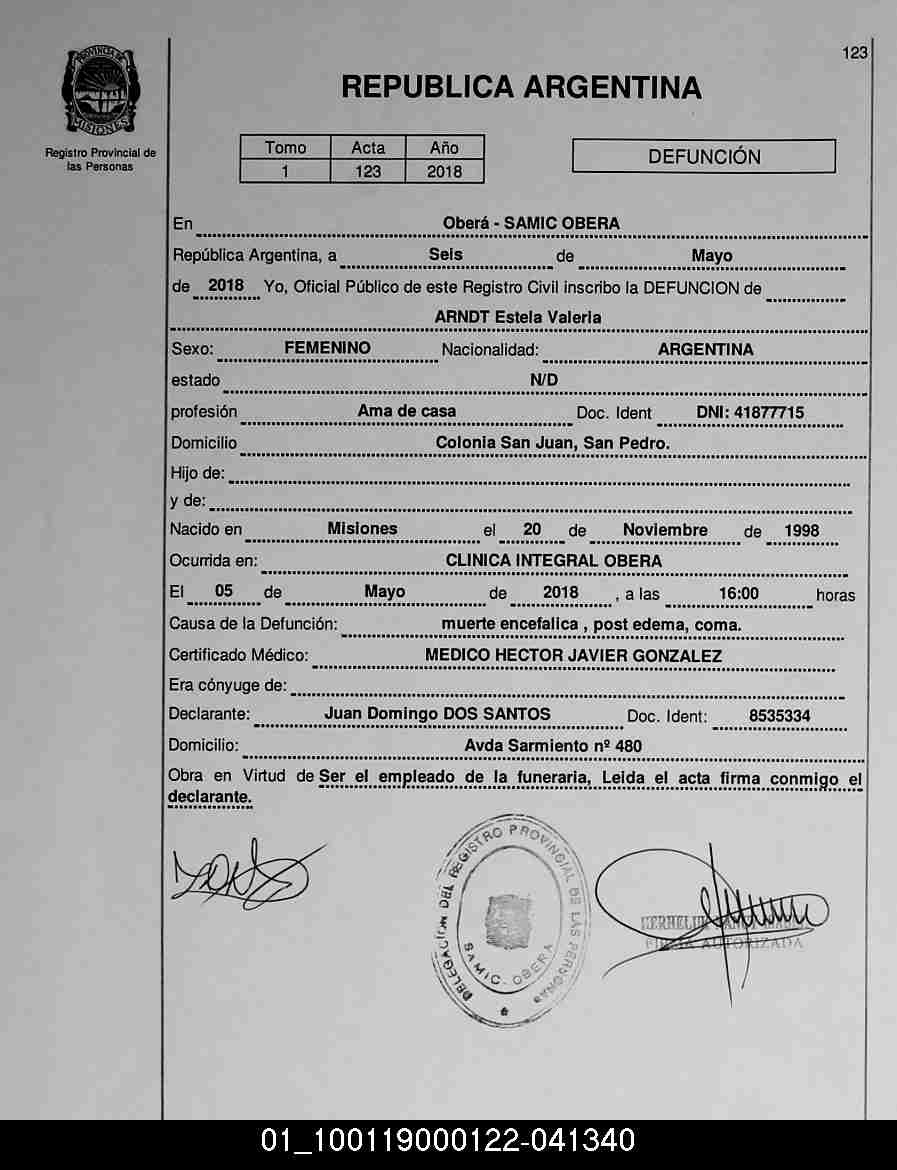 123
REPUBLICA ARGENTINA
PROVINCIA DE
MISIONES
Registro Provincial de
las Personas
Tomo Acta Año
1 123 2018
DEFUNCIÓN
En Oberá - SAMIC OBERA
República Argentina, a Seis de Mayo
de 2018 Yo, Oficial Público de este Registro Civil inscribo la DEFUNCION de
ARNDT Estela Valeria
Sexo: FEMENINO Nacionalidad: ARGENTINA
estado N/D
profesión Ama de casa Doc. Ident DNI: 41877715
Domicilio Colonia San Juan, San Pedro.
Hijo de:
y de:
Nacido en Misiones el 20 de Noviembre de 1998
Ocurrida en: CLINICA INTEGRAL OBERA
El 05 de Mayo de 2018 , a las 16:00 horas
Causa de la Defunción: muerte encefalica , post edema, coma.
Certificado Médico: MEDICO HECTOR JAVIER GONZALEZ
Era cónyuge de:
Declarante: Juan Domingo DOS SANTOS Doc. Ident: 8535334
Domicilio: Avda Sarmiento nº 480
Obra en Virtud de Ser el empleado de la funeraria, Leida el acta firma conmigo el
declarante.
DELEGACION DEL REGISTRO PROVINCIAL DE LAS PERSONAS
SAMIC. OBERA
FIRMA AUTORIZADA
01_100119000122-041340